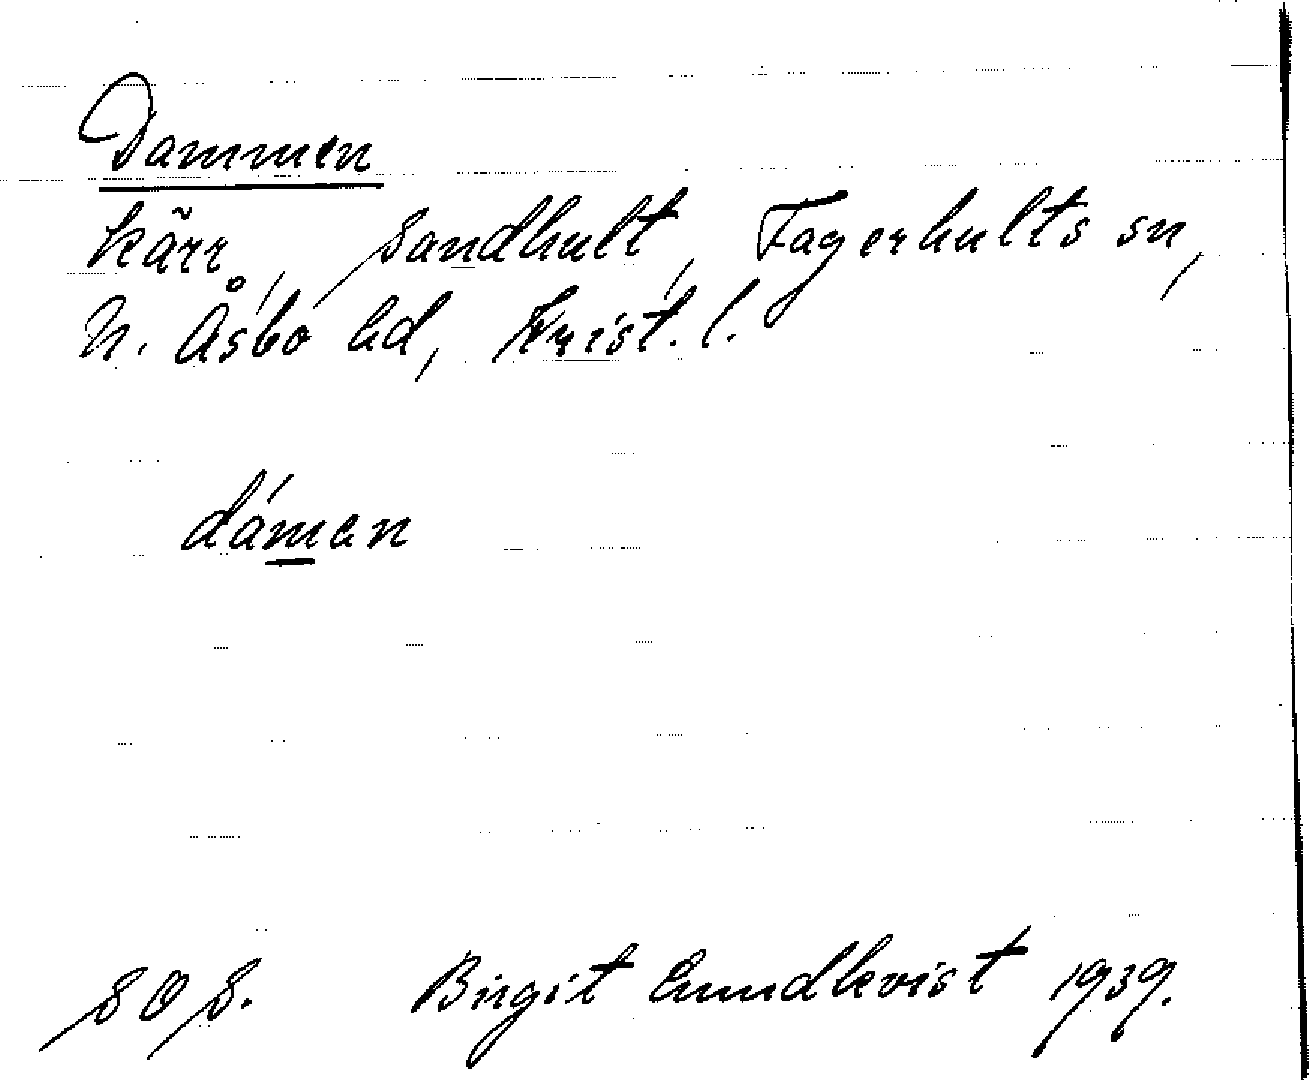 Dammen
kärr, Sandhult, Fagerhults sn,
N. Åsbo hd, Krist. l.
dámen
SOS. Birgit Lundkvist 1939.